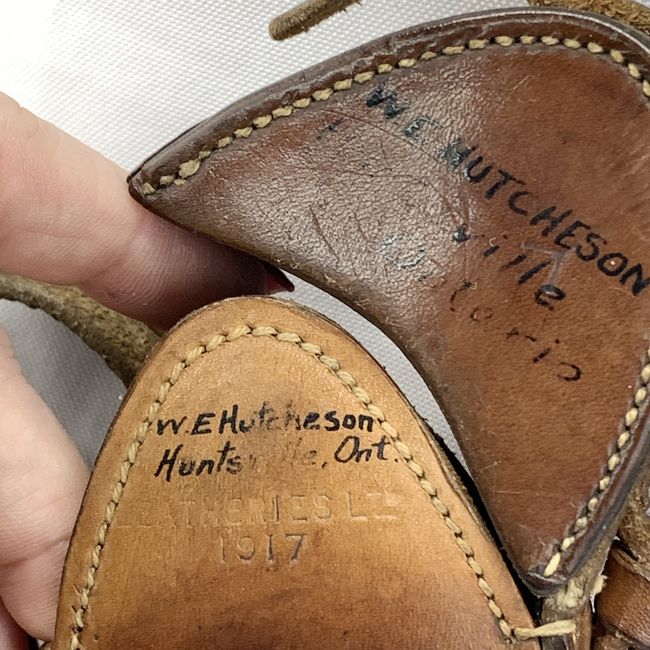 W E HUTCHESON
ville
Ontario
W. E Hutcheson
Huntsville, Ont.
1917